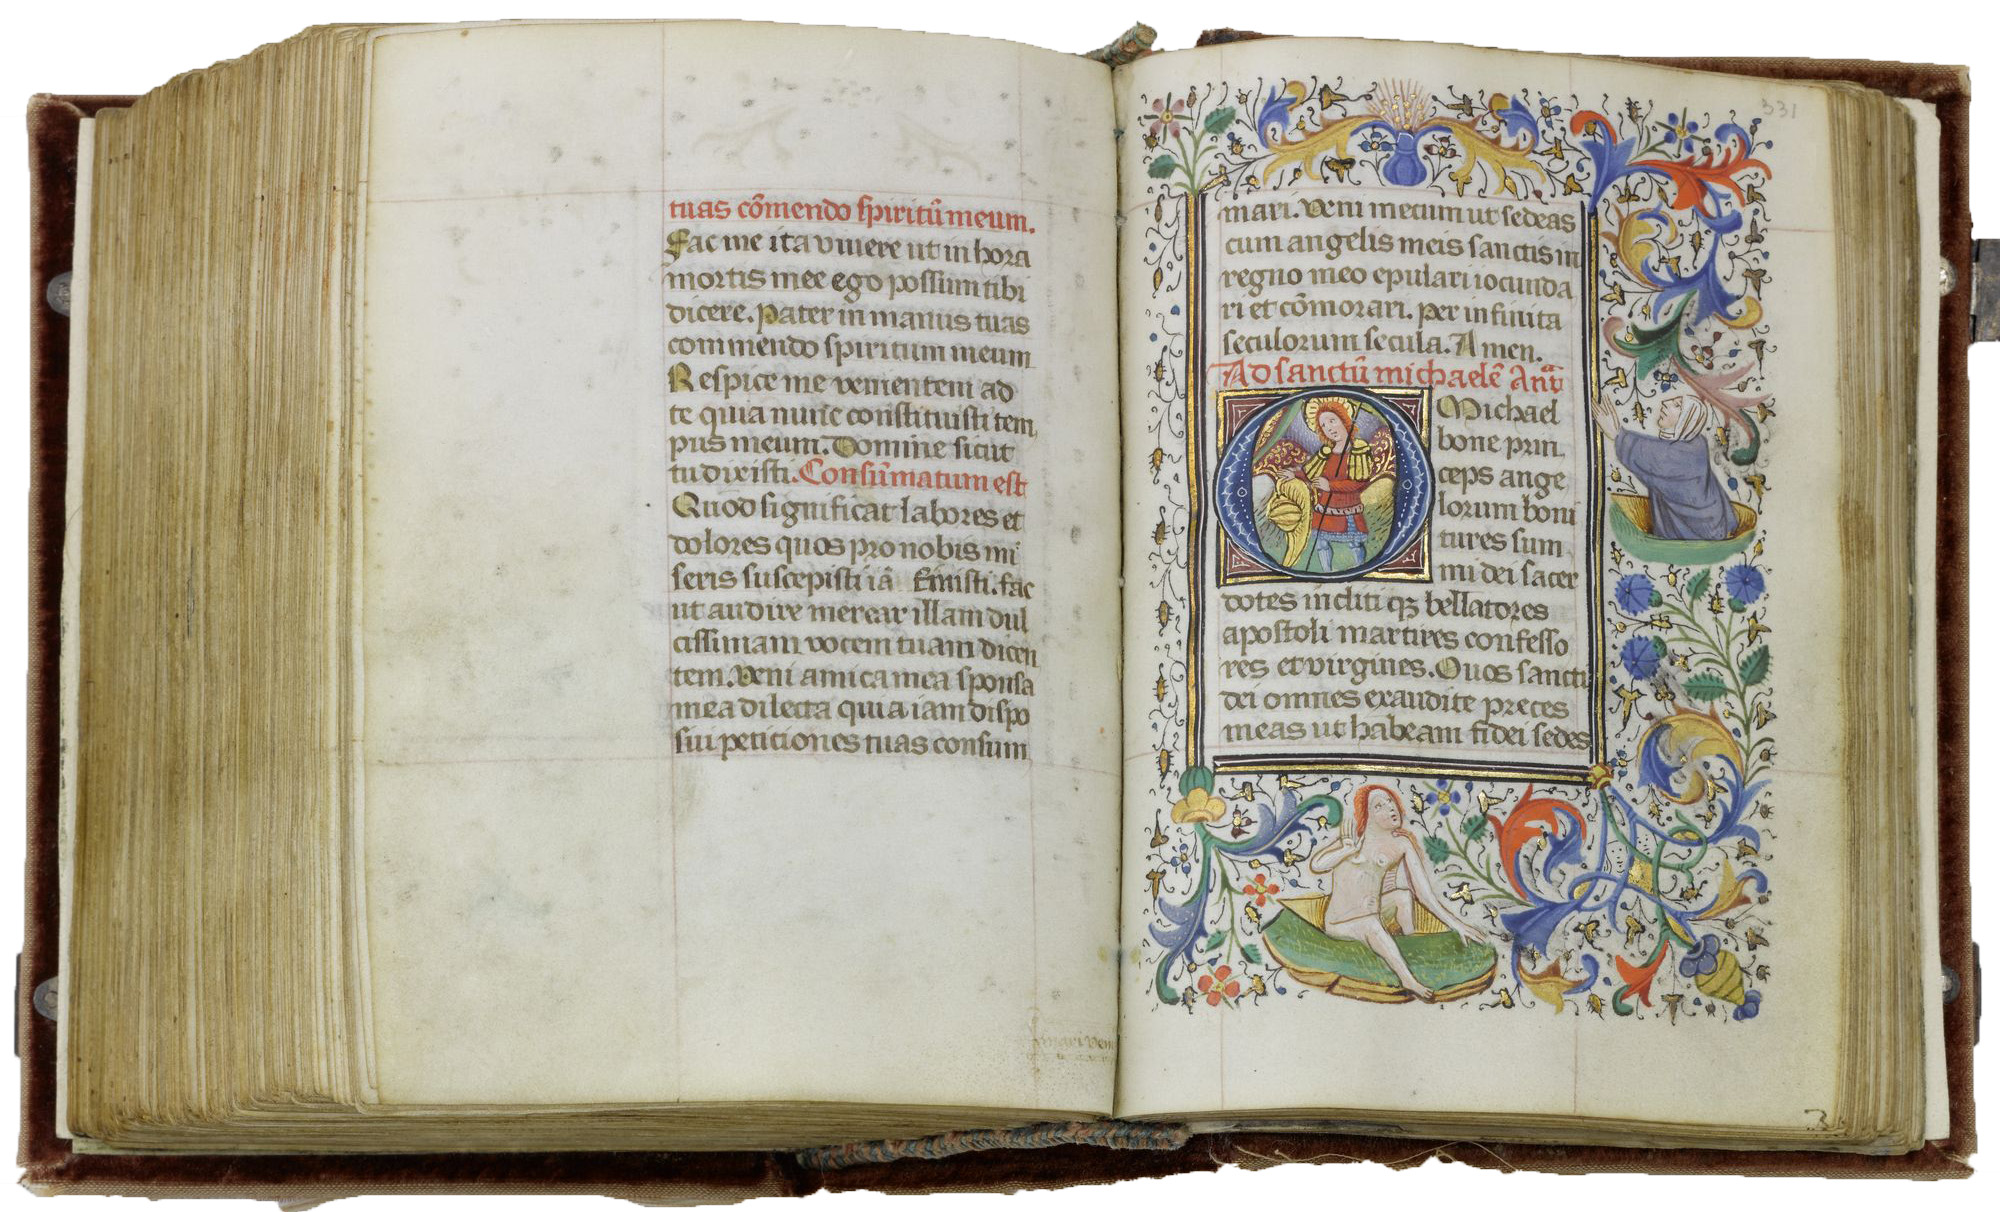 tuas cõmendo spiritũ meum.
Fac me ita vivere ut in hora
mortis mee ego possum tibi
dicere. Pater in manus tuas
commendo spiritum meum
Respice me venientem ad
te quia nunc constituisti tem
pus meum. Domine sicut
tu dixisti. Consũmatum est
Quod significat labores et
dolores quos pro nobis mi
seris suscepisti iã finisti. fac
ut audire merear illam dul
cissimam vocem tuam dicen
tem. Veni amica mea sponsa
mea dilecta quia iam dispo
sui peticiones tuas consum
mari ven
331
mari. Veni mecum ut sedeas
cum angelis meis sanctis in
regno meo epulari iocunda
ri et cõmorari. per infinita
seculorum secula. Amen.
Ad sanctũ michaelẽ Anᵃ
O Michael
bone prin
ceps ange
lorum boni
tures sum
mi dei sacer
dotes incliti qꝫ bellatores
apostoli martires confesso
res et virgines. Quos sancti
dei omnes exaudite preces
meas ut habeam fidei sedes
3